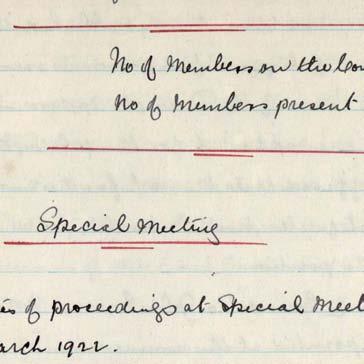 No of Members on the
No of Members present
Special Meeting
of proceedings at Special
March 1922.